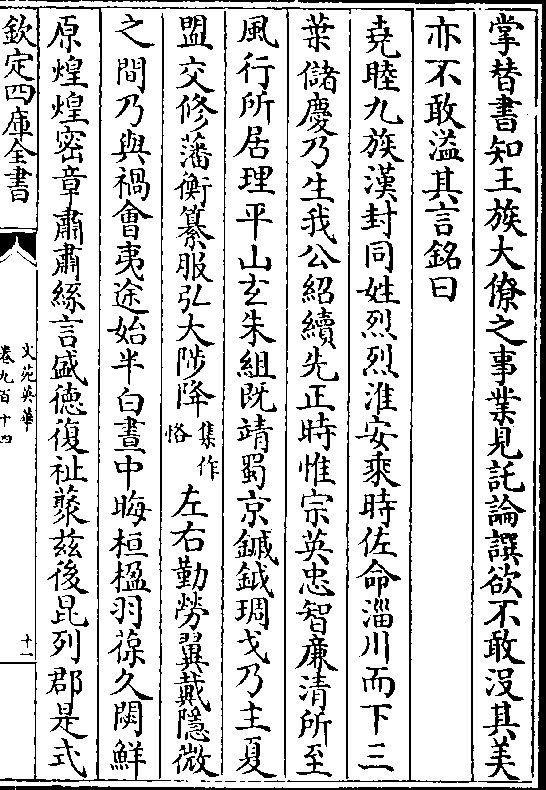 掌替書知王族大僚之事業見託論譔欲不敢没其美
亦不敢溢其言銘曰
堯睦九族漢封同姓烈烈淮安乘時佐命淄川而下三
葉儲慶乃生我公紹續先正時惟宗英忠智亷清所至
風行所居理平山玄朱組既靖蜀京鏚鉞琱戈乃主夏
盟交修藩衡纂服弘大陟降集作恪左右勤勞翼戴隱微
之間乃與禍會夷途始半白晝中晦桓楹羽葆久閟鮮
原煌煌密章肅肅綠言盛徳復祉蘂兹後昆列郡是式
欽定四庫全書
文苑英華
卷九百十四
十一